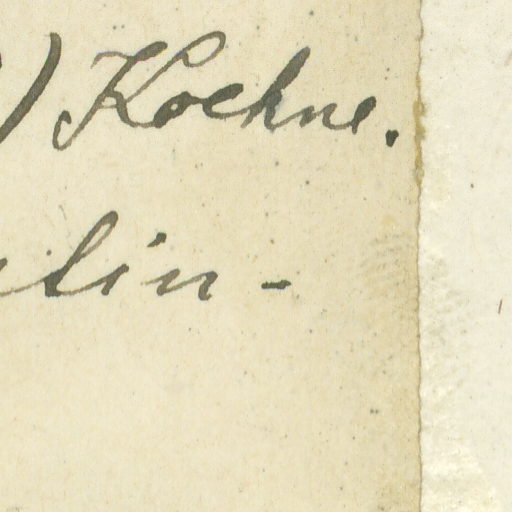 ) Koehne.
lin-